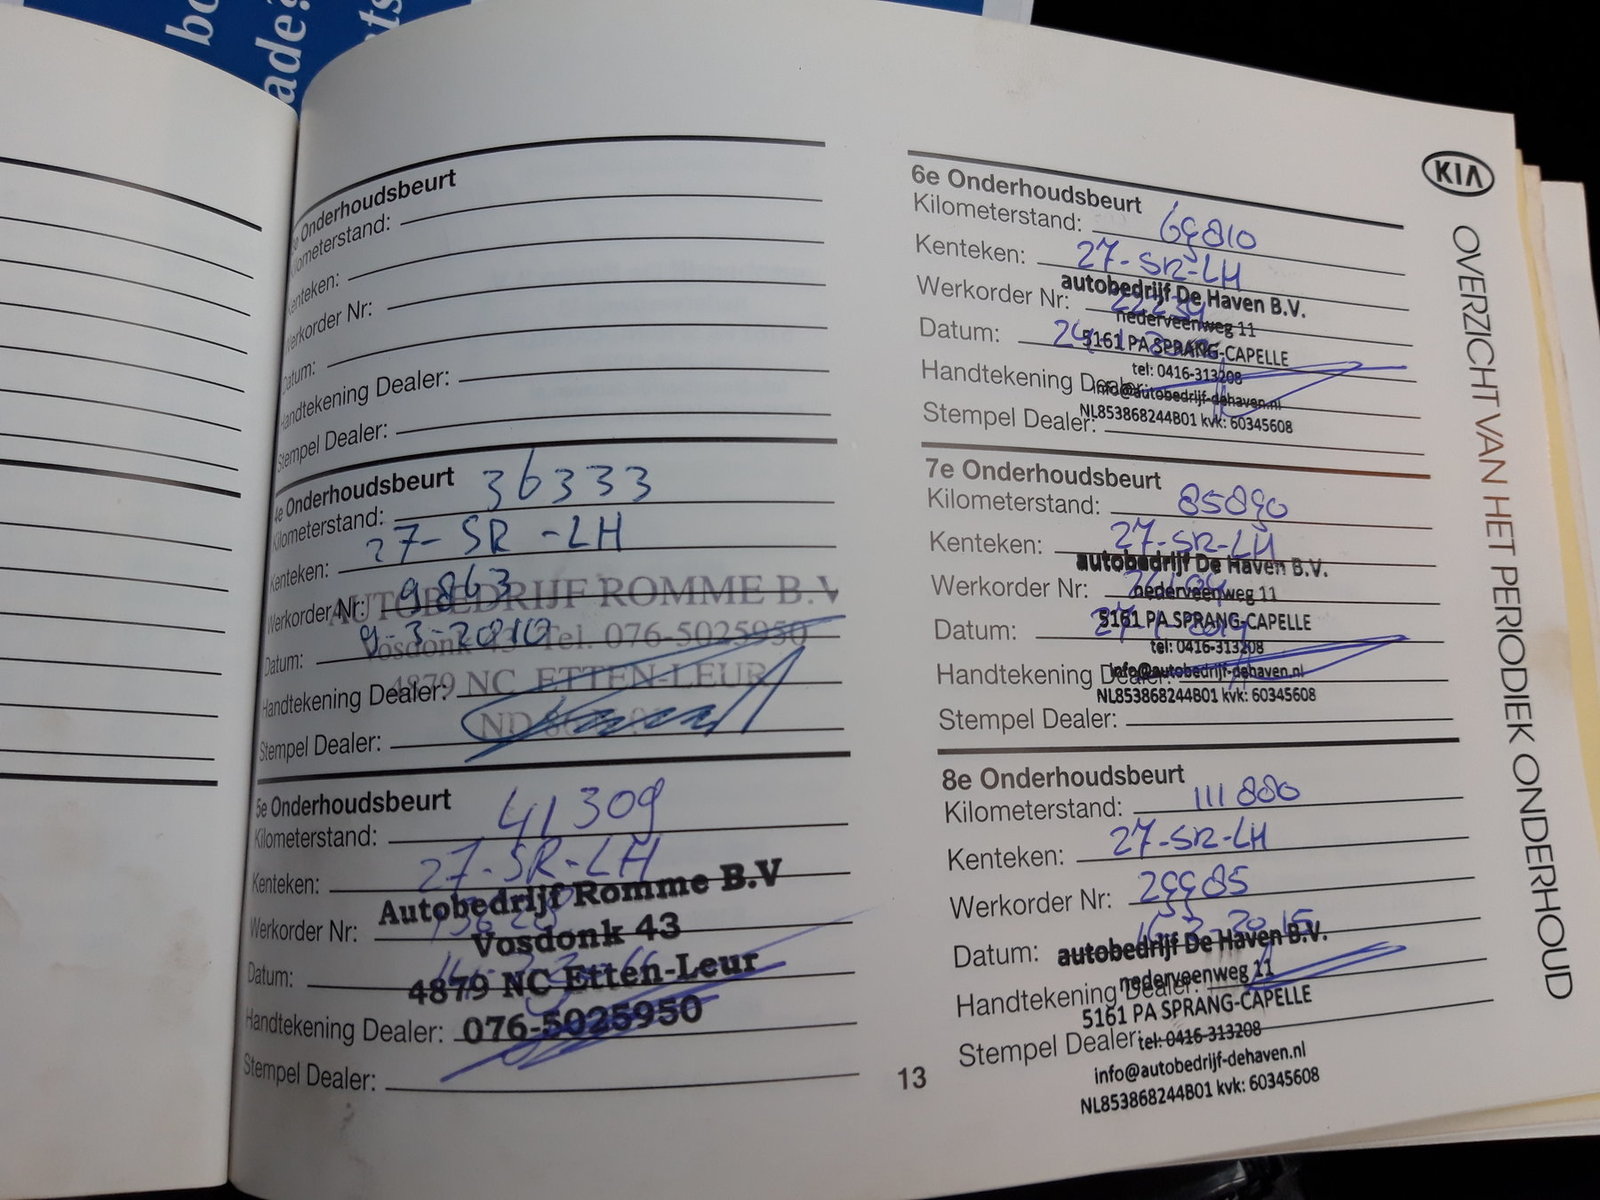 Onderhoudsbeurt
Kilometerstand:
Kenteken:
Werkorder Nr:
Datum:
Handtekening Dealer:
Stempel Dealer:
4e Onderhoudsbeurt
Kilometerstand: 36333
Kenteken: 27-SR-LH
Werkorder Nr: 9863
AUTOBEDRIJF ROMME B.V
Datum: 9-3-2010
Vosdonk 43 Tel. 076-5025950
4879 NC ETTEN-LEUR
Handtekening Dealer:
Stempel Dealer:
5e Onderhoudsbeurt
Kilometerstand: 41309
Kenteken: 27-SR-LH
Autobedrijf Romme B.V
Werkorder Nr:
Vosdonk 43
Datum:
4879 NC Etten-Leur
Handtekening Dealer:
076-5025950
Stempel Dealer:
6e Onderhoudsbeurt
Kilometerstand: 69810
Kenteken: 27-SR-LH
autobedrijf De Haven B.V.
Werkorder Nr:
nederveenweg 11
Datum:
5161 PA SPRANG-CAPELLE
tel: 0416-313208
Handtekening Dealer:
info@autobedrijf-dehaven.nl
NL853868244B01 kvk: 60345608
Stempel Dealer:
7e Onderhoudsbeurt
Kilometerstand: 85890
Kenteken: 27-SR-LH
autobedrijf De Haven B.V.
Werkorder Nr:
nederveenweg 11
5161 PA SPRANG-CAPELLE
Datum:
tel: 0416-313208
Handtekening Dealer:
info@autobedrijf-dehaven.nl
NL853868244B01 kvk: 60345608
Stempel Dealer:
8e Onderhoudsbeurt
Kilometerstand: 111880
Kenteken: 27-SR-LH
Werkorder Nr: 29985
Datum:
autobedrijf De Haven B.V.
nederveenweg 11
Handtekening Dealer:
5161 PA SPRANG-CAPELLE
Stempel Dealer:
tel: 0416-313208
info@autobedrijf-dehaven.nl
NL853868244B01 kvk: 60345608
13
KIA
OVERZICHT VAN HET PERIODIEK ONDERHOUD